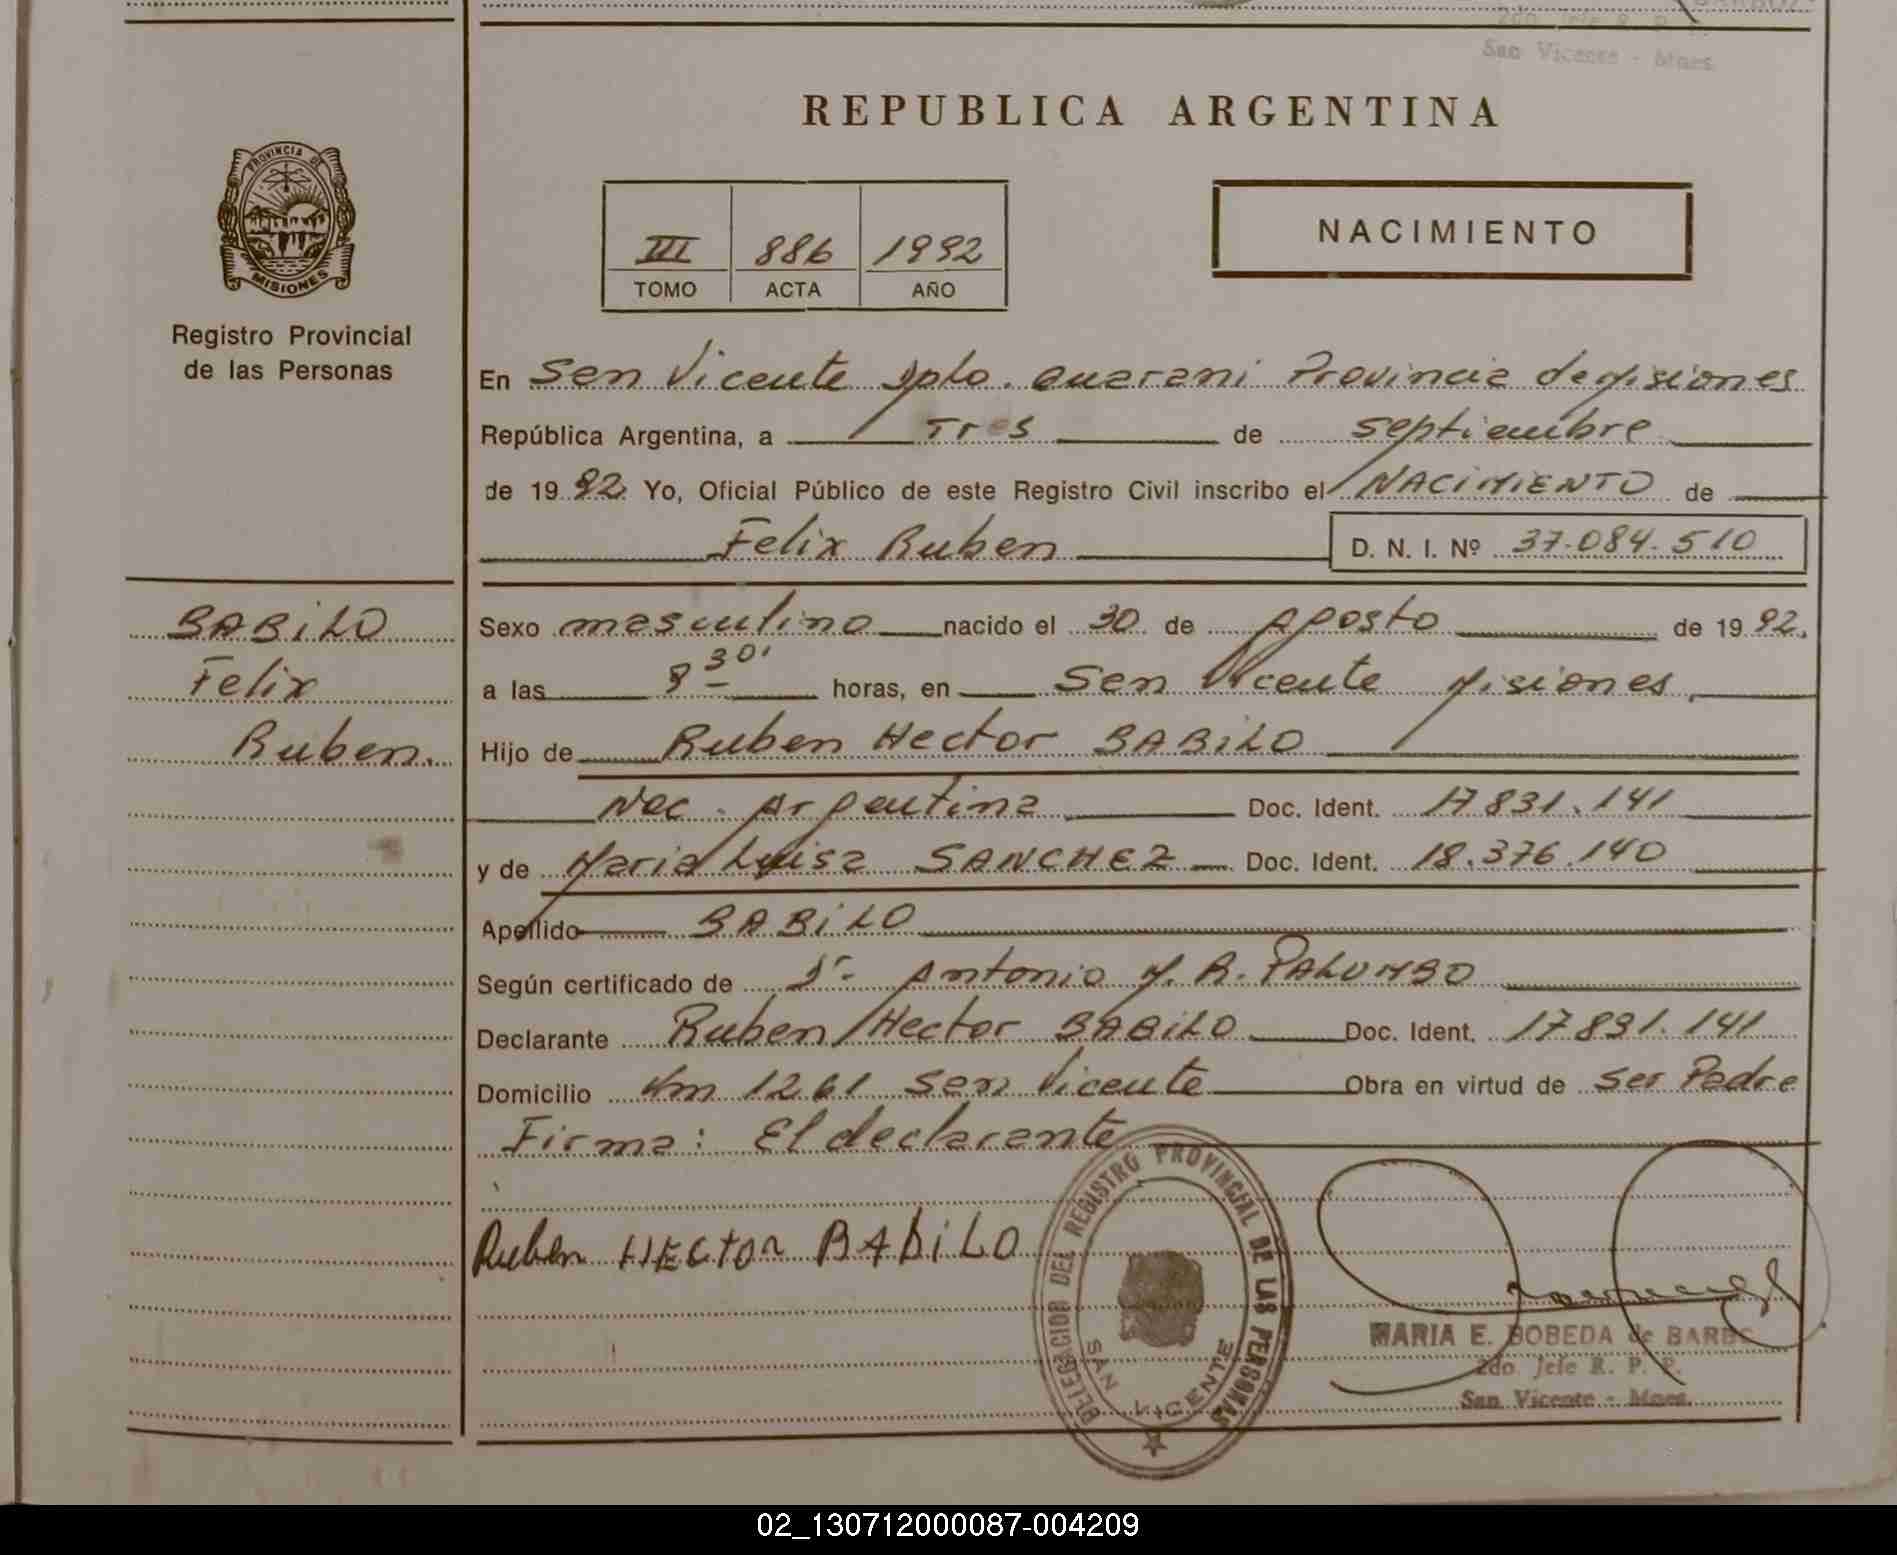 2do. Jefe R. P. P.
San Vicente - Mnes.
REPUBLICA ARGENTINA
PROVINCIA DE
MISIONES
Registro Provincial
de las Personas
III 886 1992
TOMO ACTA AÑO
NACIMIENTO
En San Vicente Dpto. Guarani Provincia de Misiones
República Argentina, a Tres de septiembre
de 1992 Yo, Oficial Público de este Registro Civil inscribo el NACIMIENTO de
Felix Ruben D. N. I. Nº 37.084.510
BABILO
Felix
Ruben.
Sexo masculino nacido el 30 de Agosto de 1992.
a las 8 30' horas, en San Vicente Misiones
Hijo de Ruben Hector BABILO
Nac. Argentina Doc. Ident. 17831.141
y de Maria Luisa SANCHEZ Doc. Ident. 18.376.140
Apellido BABILO
Según certificado de Dr. Antonio M. R. PALUMBO
Declarante Ruben Hector BABILO Doc. Ident. 17831.141
Domicilio Km 1261 San Vicente Obra en virtud de ser Padre
Firma: El declarante
Ruben HECTOR BABILO
DELEGACION DEL REGISTRO PROVINCIAL DE LAS PERSONAS
SAN VICENTE
MARIA E. BOBEDA de
2do. Jefe R. P. P.
San Vicente - Mnes.
02_130712000087-004209